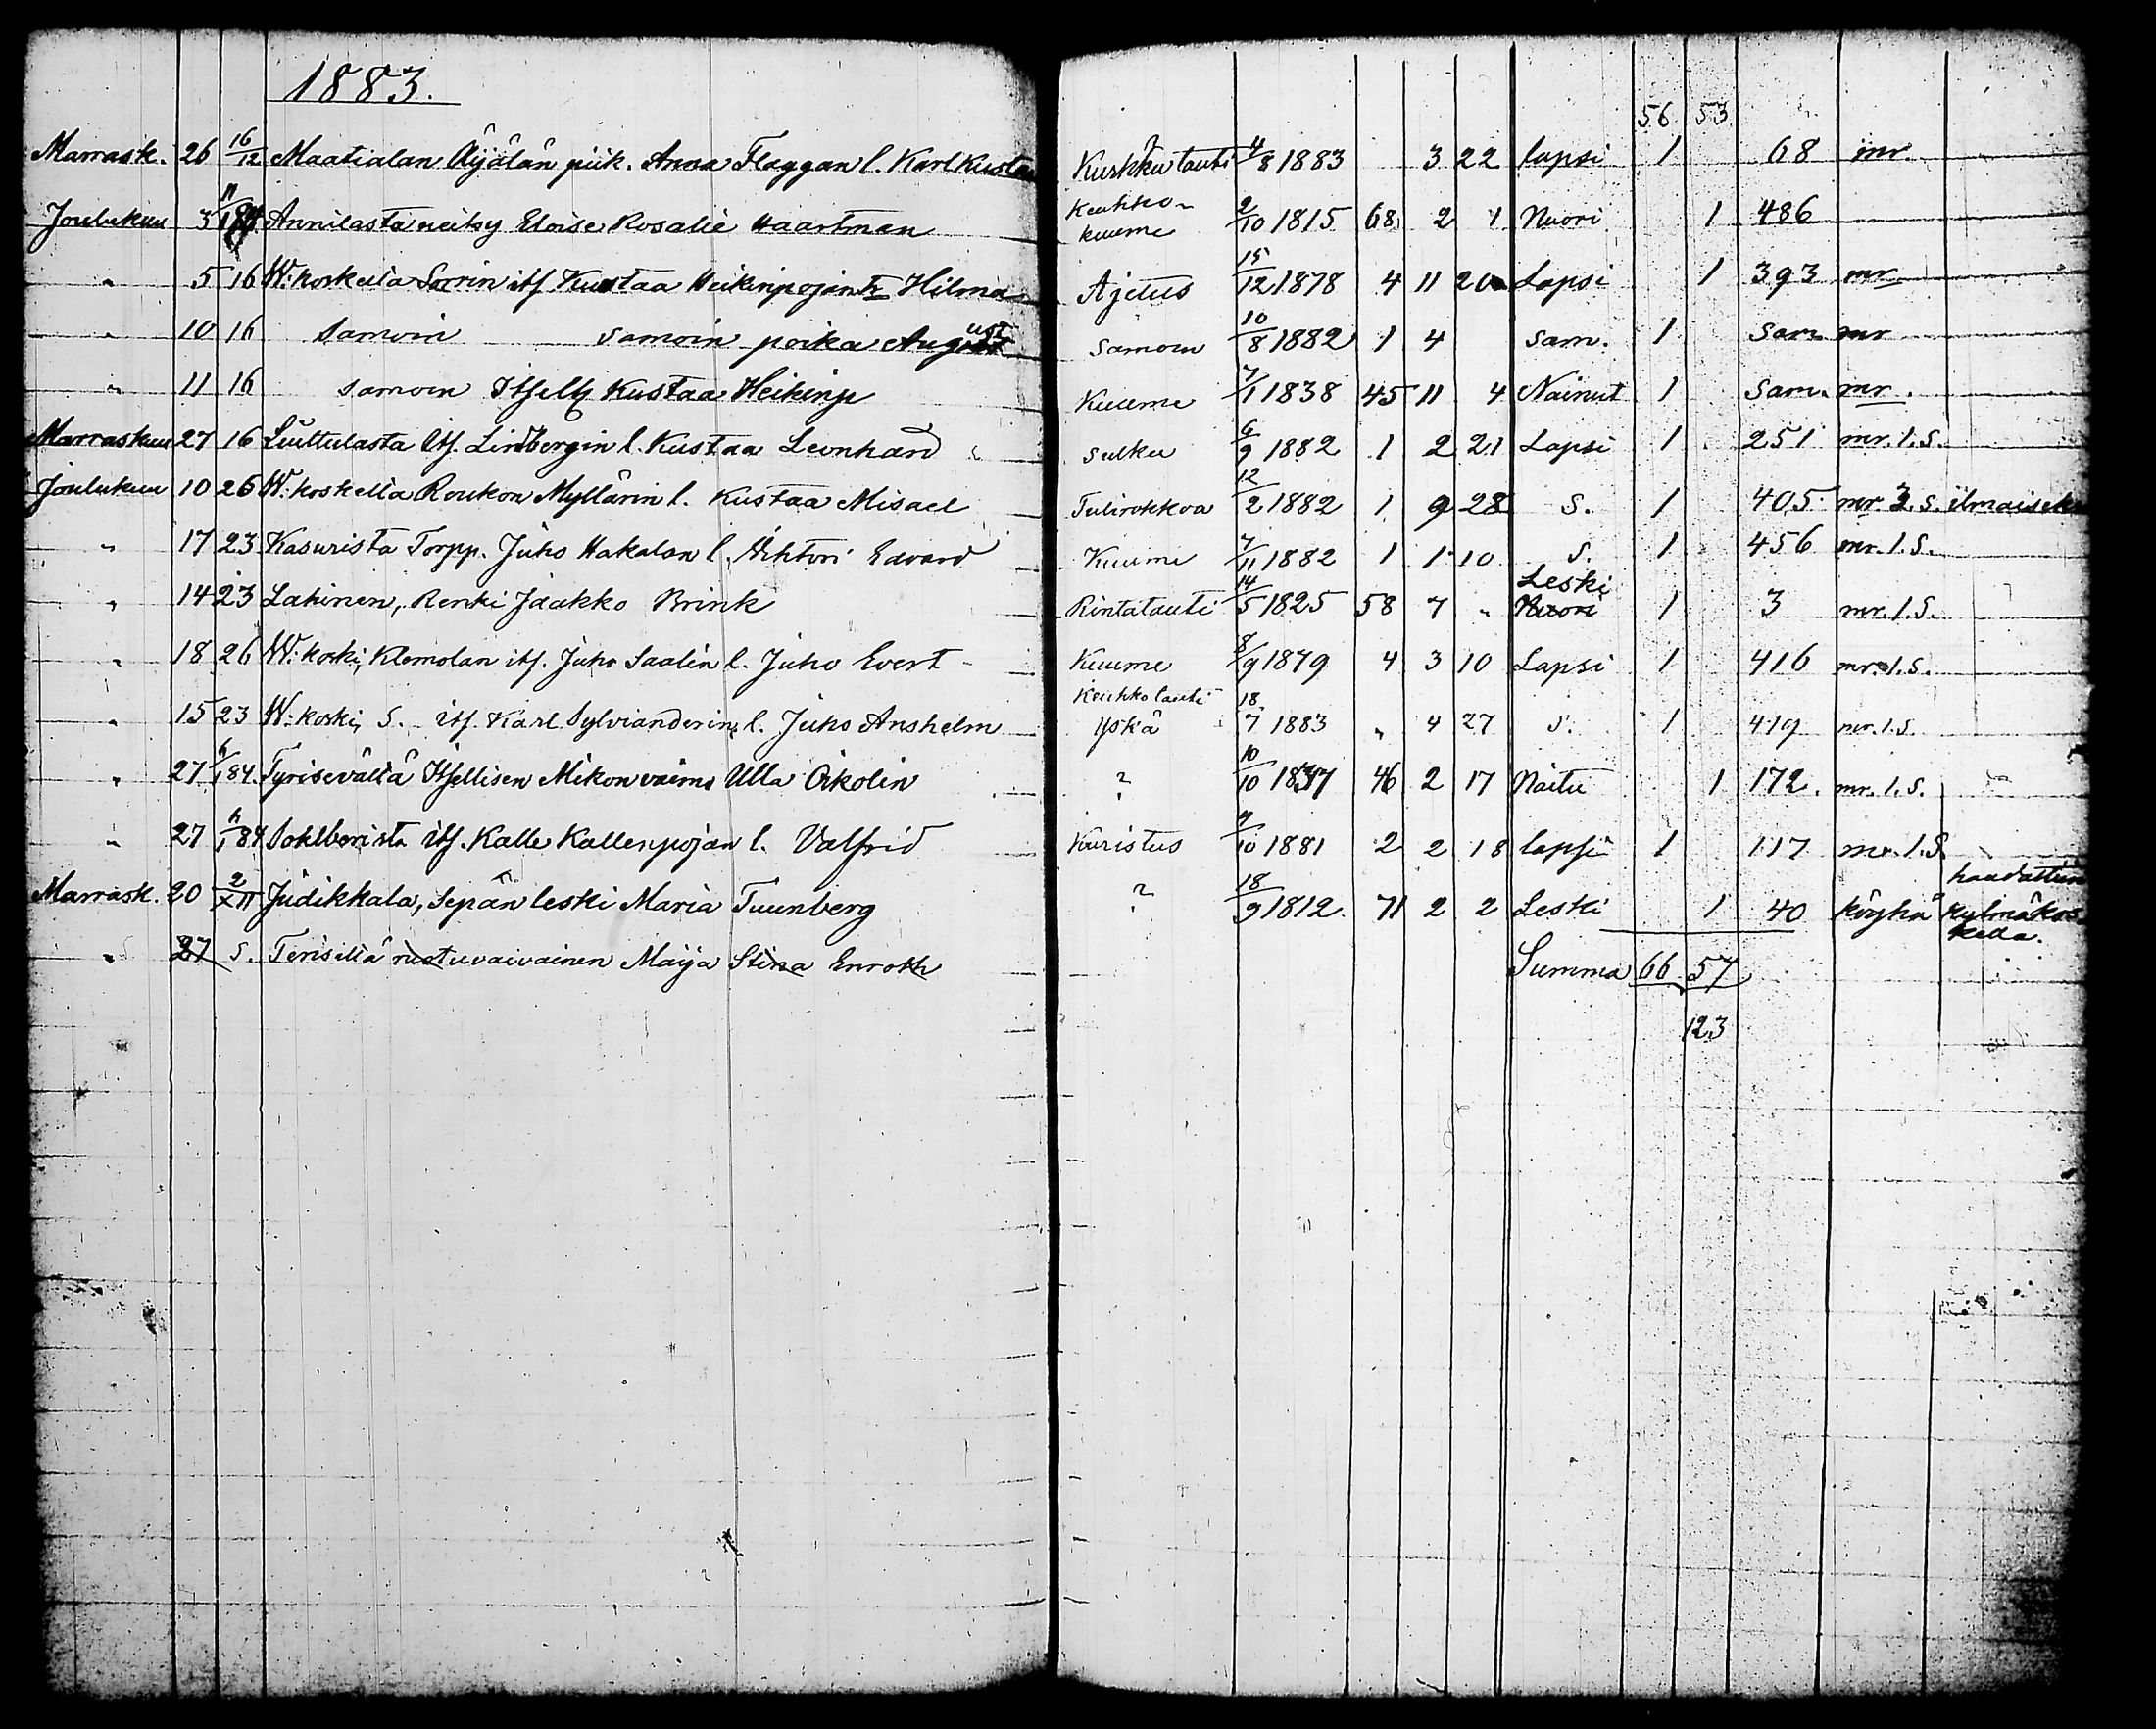 1883.
56 53
Marrask. 26 16/12 Maatialan Äijälän piik. Anna Flaggan l. Karl Kusta Kurkku tauti 4/8 1883 3 22 lapsi 1 68 mr.
Joulukuu 3 Annilasta neitsy Eloise Rosalie Haartman Keuhko- kuume 2/10 1815 68 2 1 Nuori 1 486
" 5 16 W:koskella Sorrin itf Kustaa Heikinpojan tr Hilma Ajetus 15/12 1878 4 11 20 Lapsi 1 393 mr
" 10 16 Samoin samoin poika August samoin 10/8 1882 1 4 sam. 1 sam mr
" 11 16 samoin Itfell Kustaa Heikinp Kuume 7/1 1838 45 11 4 Nainut 1 sam. mr.
Marraskuu 27 16 Liuttulasta Itf. Lindbergin l. Kustaa Leonhard sulku 6/9 1882 1 2 21 Lapsi 1 251 mr. 1. S.
Joulukuu 10 26 W:koskella Roukon Myllärin l. Kustaa Misael Tulirokkoa 12/2 1882 1 9 28 S. 1 405 mr. 3. S. ilmaiseksi
" 17 23 Kasurista Torpp. Juho Hakalan l. Vihtori Edvard Kuume 7/11 1882 1 1 10 S. 1 456 mr. 1. S.
" 14 23 Lahinen, Renki Jaakko Brink Rintatauti 14/5 1825 58 7 " Leski Nuori 1 3 mr. 1. S.
" 18 26 W:koski, Klemolan itf. Juho Saalin l. Juho Evert Kuume 8/9 1879 4 3 10 Lapsi 1 416 mr. 1. S.
" 15 23 W:koski, S. itf. Karl Sylvianderin l. Juho Anshelm Keuhko tauti Yskä 18/7 1883 " 4 27 S. 1 419 mr. 1. S.
" 27 6/1 84. Tyrisevältä Itfellisen Mikon vaimo Ulla Oikolin ? 10/10 1837 46 2 17 Naitu 1 172. mr. 1. S.
" 27 6/1 84 Sohlborista itf. Kalle Kallenpojan l. Valfrid Kuristus 9/10 1881 2 2 18 lapsi 1 117 mr. 1. S
Marrask. 20 2/XII Judikkala, Sepän leski Maria Tuunberg ? 18/9 1812 71 2 2 Leski 1 40 köyhä haudattiin Kylmäkos kella.
" 27 S. Terisillä ruotuvaivainen Maija Stina Enroth
Summa 66 57
123